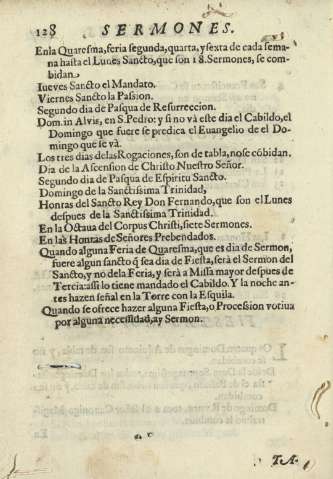 128 SERMONES.
Enla Quaresma, feria segunda, quarta, y sexta de cada sema-
na hasta el Lunes Sancto, que son 18. Sermones, se com-
bidan.
Iueves Sancto el Mandato.
Viernes Sancto la Passion.
Segundo dia de Pasqua de Resurreccion.
Dom. in Alvis, en S. Pedro: y si no và este dia el Cabildo, el
Domingo que fuere se predica el Euangelio de el Do-
mingo que se và.
Los tres dias de las Rogaciones, son de tabla, no se cõbidan.
Dia de la Ascension de Christo Nuestro Señor.
Segundo dia de Pasqua de Espiritu Sancto.
Domingo de la Sanctissima Trinidad,
Honras del Sancto Rey Don Fernando, que son el Lunes
despues de la Sanctissima Trinidad.
En la Octaua del Corpus Christi, siete Sermones.
En las Honras de Señores Prebendados.
Quando alguna Feria de Quaresma, que es dia de Sermon,
fuere algun sancto q̃ sea dia de Fiesta, serà el Sermon del
Sancto, y no dela Feria, y serà a Missa mayor despues de
Tercia: assi lo tiene mandado el Cabildo. Y la noche an-
tes hazen señal en la Torre con la Esquila.
Quando se ofrece hazer alguna Fiesta, o Procession votiua
por alguna necessidad, ay Sermon.
TA-